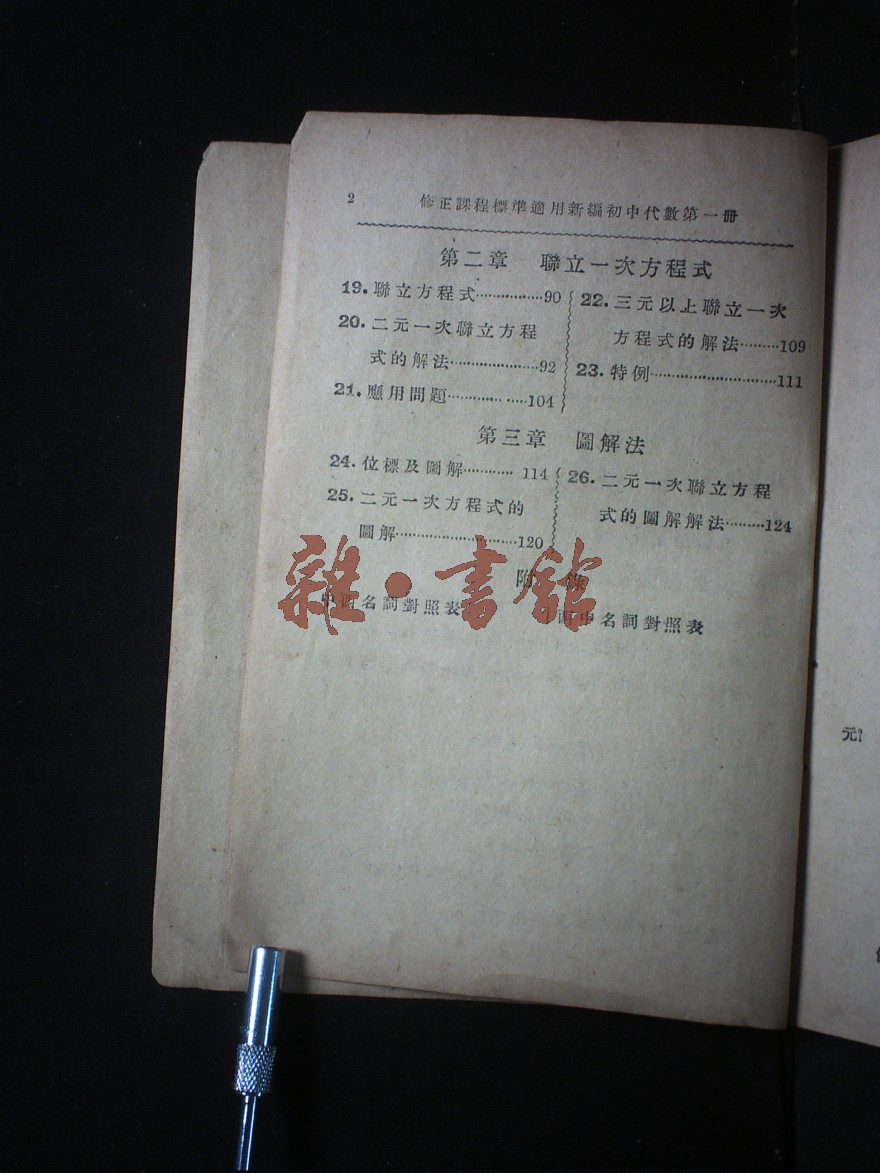 2 修正課程標準適用新編初中代數第一冊
第二章 聯立一次方程式
19. 聯立方程式················90
20. 二元一次聯立方程
式的解法·····················92
21. 應用問題············ ·····104
22. 三元以上聯立一次
方程式的解法·········109
23. 特例·····························111
第三章 圖解法
24. 位標及圖解············ 114
25. 二元一次方程式的
圖解····························120
26. 二元一次聯立方程
式的圖解解法·········124
附 錄
中西名詞對照表
西中名詞對照表
雜·書館
元